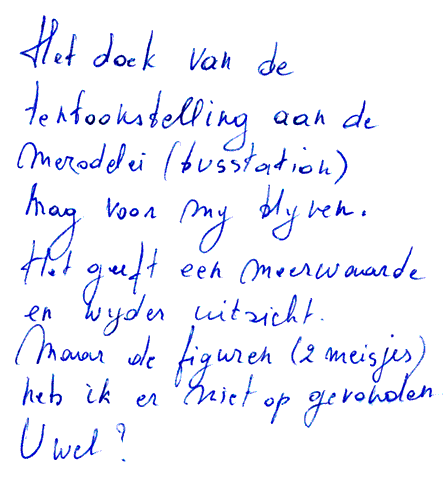 Het doek van de
tentoonstelling aan de
Merodelei (busstation)
mag voor my blyven.
Het geeft een meerwaarde
en wyder uitzicht.
Maar de figuren (2 meisjes)
heb ik er niet op gevonden
U wel?